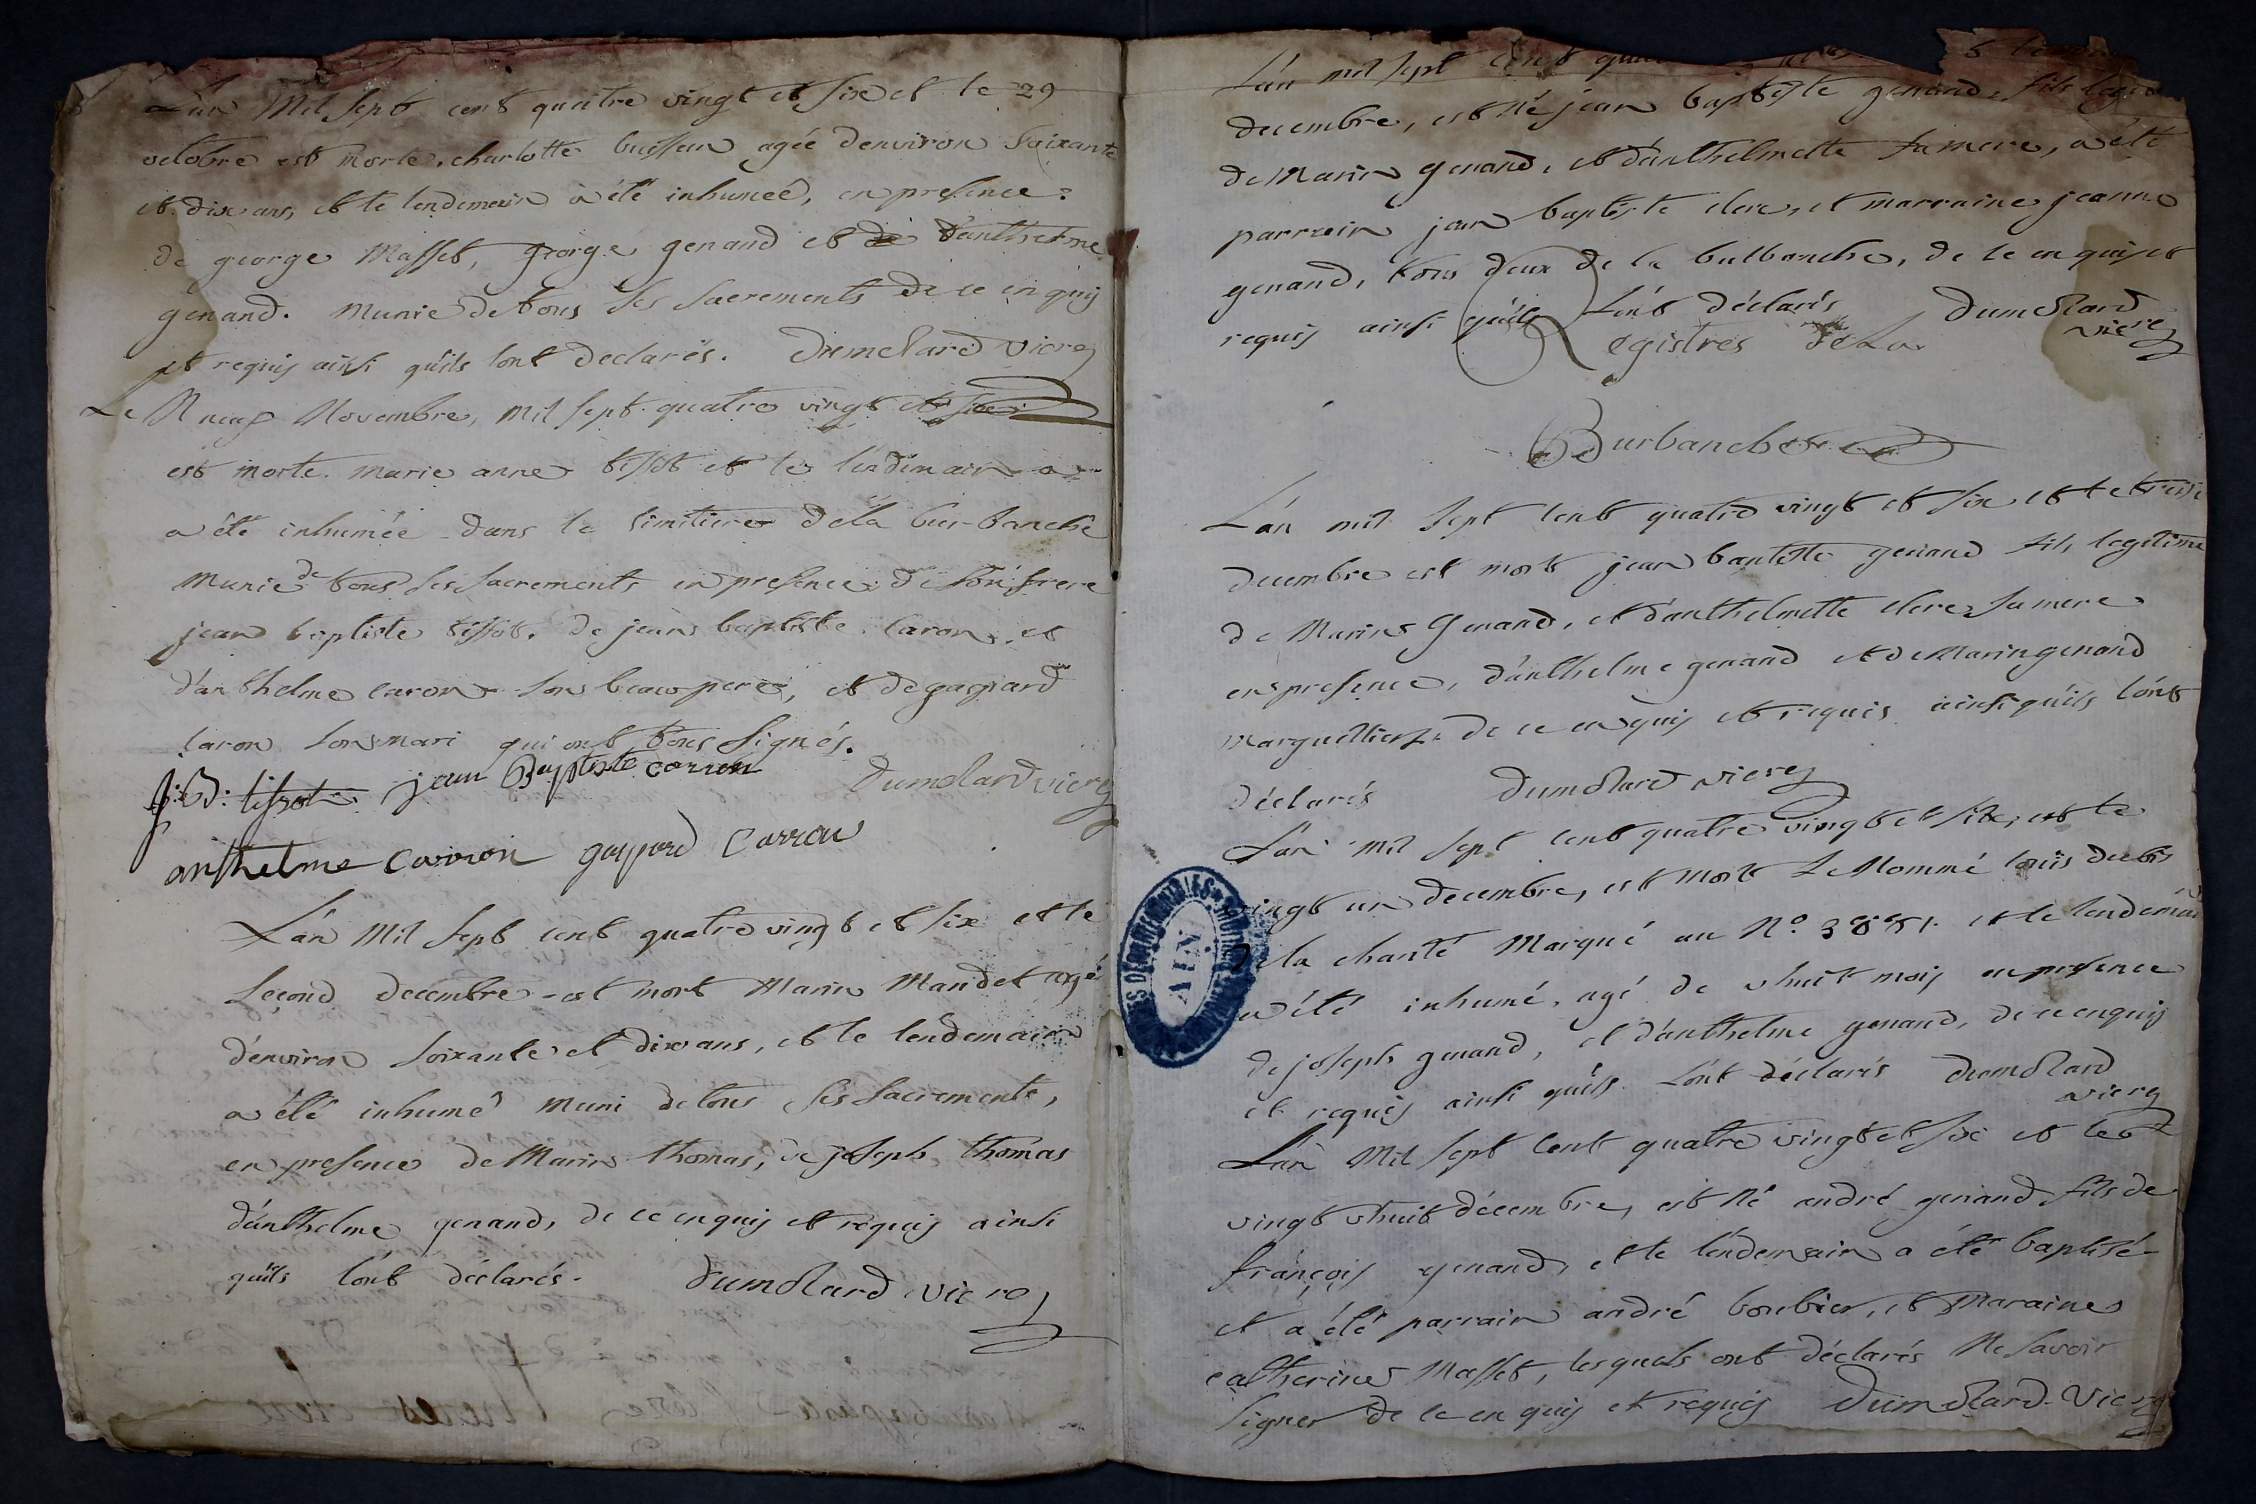 L'an Mil sept cent quatre vingt et six et le 29
octobre est morte, charlotte buisson agée d'environ soixante
et dix ans, et le lendemain a été inhumeé, en presence
de george Masset, george genand et de d'anthelme
genand. munie de tous ses sacrements de ce enquis
et requis ainsi quils l'ont declarés. Dumolard vicre
Le Neuf Novembre, mil sept quatre vingt et six
est morte marie anne tissot et le lendemain a
a été inhumée dans le simitiere dela bur-banche
munie de tous ses sacrements en presence de son frere
jean baptiste tissot, de jean baptiste caron, et
d'anthelme caron son beau pere, et de gaspard
caron son mari qui ont tous signés.
J: B: tissot jean Baptiste carron Dumolard vicre
anthelme Carron gaspard Carron
L'an Mil sept cent quatre vingt et six et le
second decembre est mort Marin Mandet agé
d'environ soixante et dix ans, et le lendemain
a été inhumé muni de tous ses sacrements,
en presence de Marin thomas, de joseph thomas
d'anthelme genand, de ce enquis et requis ainsi
quils l'ont déclarés. Dumolard vicre
L'an mil sept cent
decembre, est né jean baptiste genand, fils
de Marin genand, et d'anthelmette sa mere, a été
parrain jean baptiste clerc, et marraine jeanne
genand, tous deux de la bulbanche, de ce enquis et
requis ainsi quils l'ont déclarés Dumolard
vicre
Registres de La
Burbanche
L'an mil sept cent quatre vingt et six et le treise
decembre est mort jean baptiste genand fils legitime
de Marin Genand, et d'anthelmette clerc sa mere
en presence, d'anthelme genand et de Marin genand
marguilliers de ce enquis et requis ainsi quils l'ont
déclarés Dumolard vicre
L'an mil sept cent quatre vingt et six, et le
vingt un decembre, est mort Le Nommé louis
de la charité Marqué au No. 3881. et le lendemain
a été inhumé, agé de vhuit mois en presence
de joseph genand, et d'anthelme genand, de ce enquis
et requis ainsi quils l'ont déclarés Dumolard
vicre
L'an Mil sept cent quatre vingt et six et le
vingt vhuit décembre, est né andré genand fils de
françois genand, et le lendemain a été baptisé
et a été parrain andré boubier, et Maraine
catherine Masset, lesquels ont déclarés Ne savoir
signer de ce enquis et requis Dumolard vicre
AIN